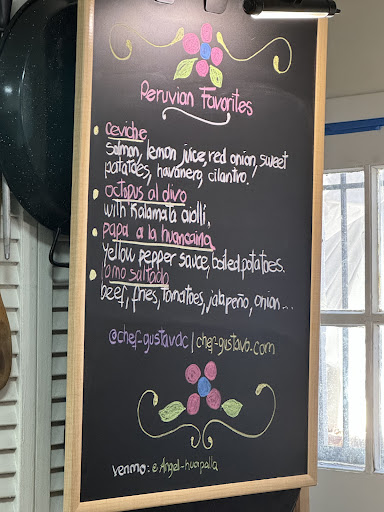 Peruvian Favorites
• Ceviche
Salmon, lemon juice, red onion, sweet
patatoes, havanero, cilantro.
• octopus al divo
with Kalamata aiolli,
• papa a la huancaina
Yellow pepper sauce, boiled potatoes.
• lomo saltado
beef, fries, tomatoes, jalapeño, onion...
@chef-gustavdc | chef-gustavo.com
venmo: @Angel-huapalla